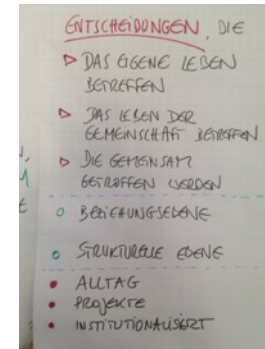 ENTSCHEIDUNGEN, DIE
DAS EIGENE LEBEN
BETREFFEN
DAS LEBEN DER
GEMEINSCHAFT BETREFFEN
DIE GEMEINSAM
GETROFFEN WERDEN
BEZIEHUNGSEBENE
STRUKTURELLE EBENE
ALLTAG
PROJEKTE
INSTITUTIONALISIERT